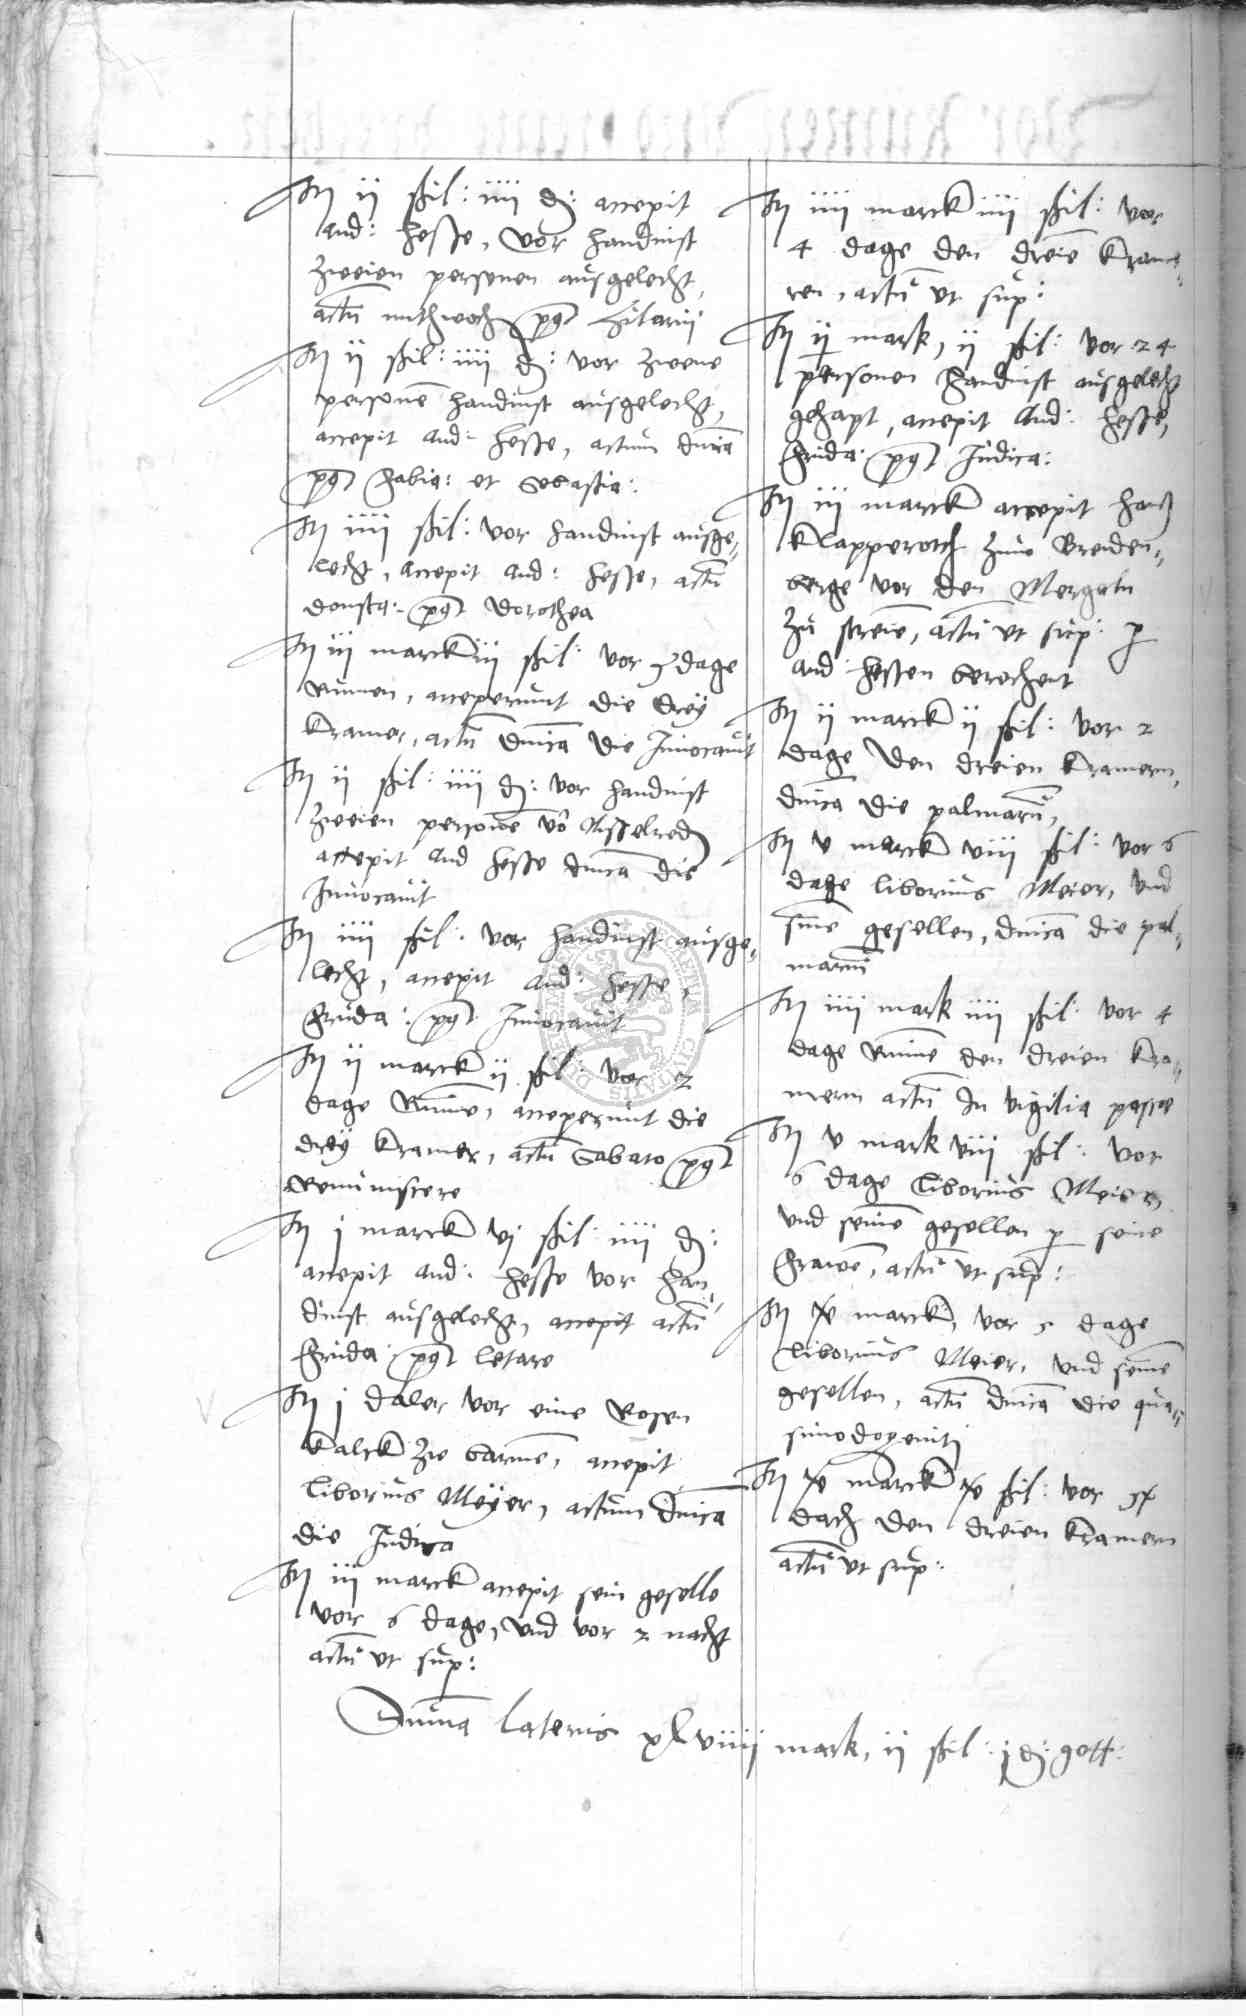 It ij ßil: iiij d: accepit
And: Hesse, vor handinst
zweien personen ausgelecht,
actu mithwoch pg Hilarii
It ij ßil: iiij d: vor zweene
personē handinst ausgelecht,
accepit And: Hesse, actum dnica
pg Fabia: et Sebastia:
It iiij ßil: vor handinst ausge-
lecht, accepit And: Hesse, actū
donsta: pg Dorothea
It iij marck iij ßil: vor 3 dage
Rumen, acceperunt die drey
Kramer, actū dnica die Invocavit
It ij ßil: iiij d: vor handinst
zweien personē vō
accepit And Hesse dnica die
Invocavit
It iiij ßil: vor handinst ausge-
lecht, accepit And: Hesse,
Frida: pg Invocavit
It ij marck ij ßil: vor 2
dage Rumē, acceperunt die
drey Kramer, actū Sabato pg
Reminiscere
It j marck vj ßil: iiij d:
accepit And: Hesse vor han-
dinst ausgelecht, accepit actū
Frida: pg Letare
It j daler vor eine Rosen
Kalck zu barnē, accepit
Liborius Meyer, actum dnica
die Judica
It iij marck accepit sein geselle
vor 6 dage, und vor 2 nacht
actū ut sup:
It iiij marck iiij ßil: vor
4 dage den dreiē Krame-
ren, actū ut sup:
It ij mark, ij ßil: vor 24
personen handinst ausgelecht
gehapt, accepit And: Hesse,
Frida: pg Judica:
It iij marck accepit Hans
Klapperoth zum Breiden-
berge vor den Mergeln
zu , actū ut sup: p
And: Hessen berechent
It ij marck ij ßil: vor 2
dage den dreien Kramern,
dnica die palmarū,
It v marck viij ßil: vor 6
dage Liborius Meier, und
sinē gesellen, dnica die pal-
marū
It iiij mark iiij ßil: vor 4
dage Rumē den dreien Kra-
mern actū In vigilia pasce
It v mark viij ßil: vor
6 dage Liborius Meier,
und seinē gesellen p seine
frawē, actū ut sup:
It marck, vor 5 dage
Liborius Meier, und seinē
gesellen, actū dnica die qua-
simodogeniti
It marck ßil: vor
dach den dreien Kramern
actū ut sup:
Summa lateris xlviiij mark, ij ßil: j d: gott: